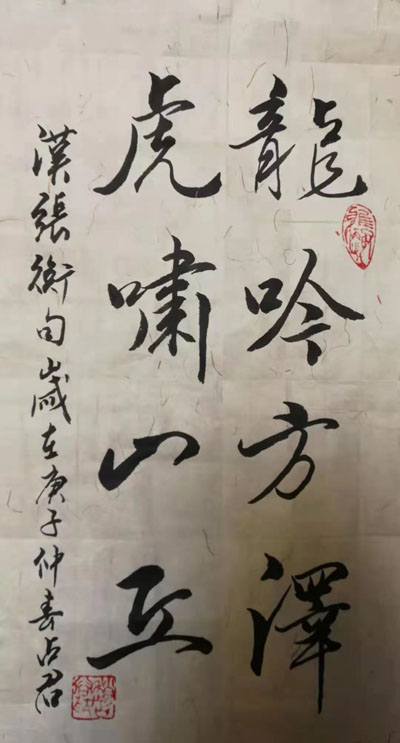 龍吟方澤
虎嘯山丘
漢張衡句歲在庚子仲春占君